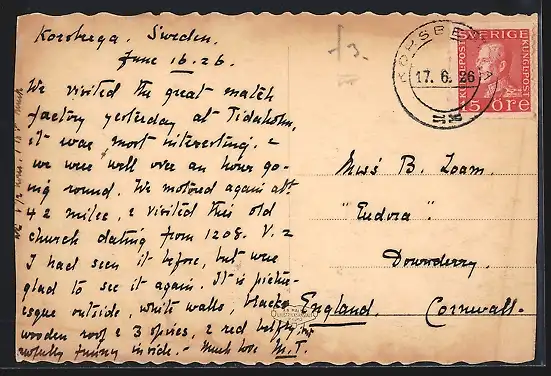 Korsberga. Sweden.
June 16.26.
We visited the great match
factory yesterday at Tidaholm,
it was most interesting. &
we were well over an hour go-
ing round. We motored again abt
42 miles, & visited this old
church dating from 1208. V. &
I had seen it before, but were
glad to see it again. It is pictur-
esque outside, white walls, black
wooden roof & 3 spires, & red belfry,
awfully funny inside. - Much love M.T.
KORSBERGA
17. 6. 26
SVERIGE
KUNGL.POST
KUNGL.POST
15 ÖRE
Miss B. Loam.
"Eudora".
Downderry.
England. Cornwall.